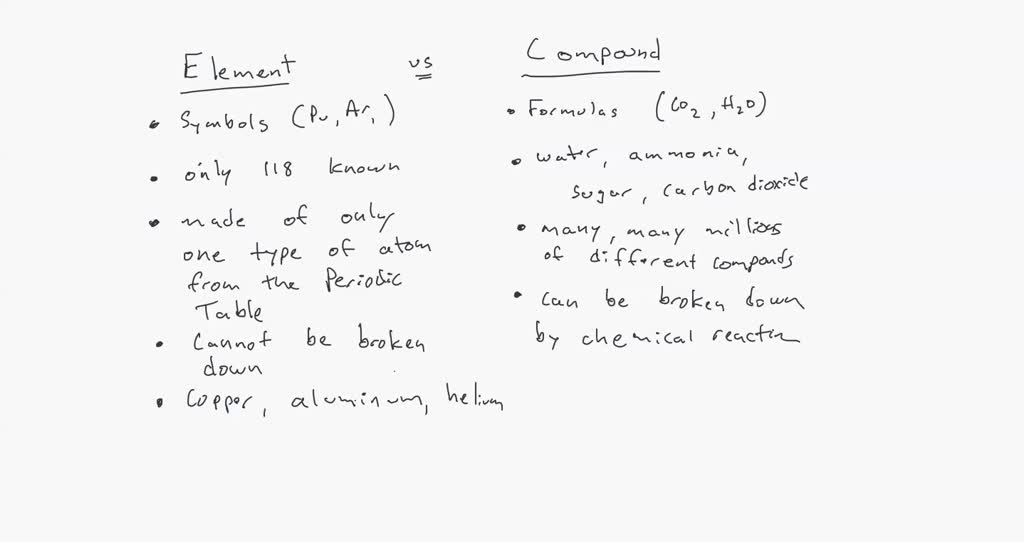 Element
• Symbols (Pu, Ar, )
• only 118 known
• made of only
one type of atom
from the Periodic
Table
• Cannot be broken
down
• Copper, aluminum, helium
vs
Compound
• Formulas (CO2, H2O)
• water, ammonia,
sugar, carbon dioxide
• many, many millions
of different componds
• can be broken down
by chemical reaction